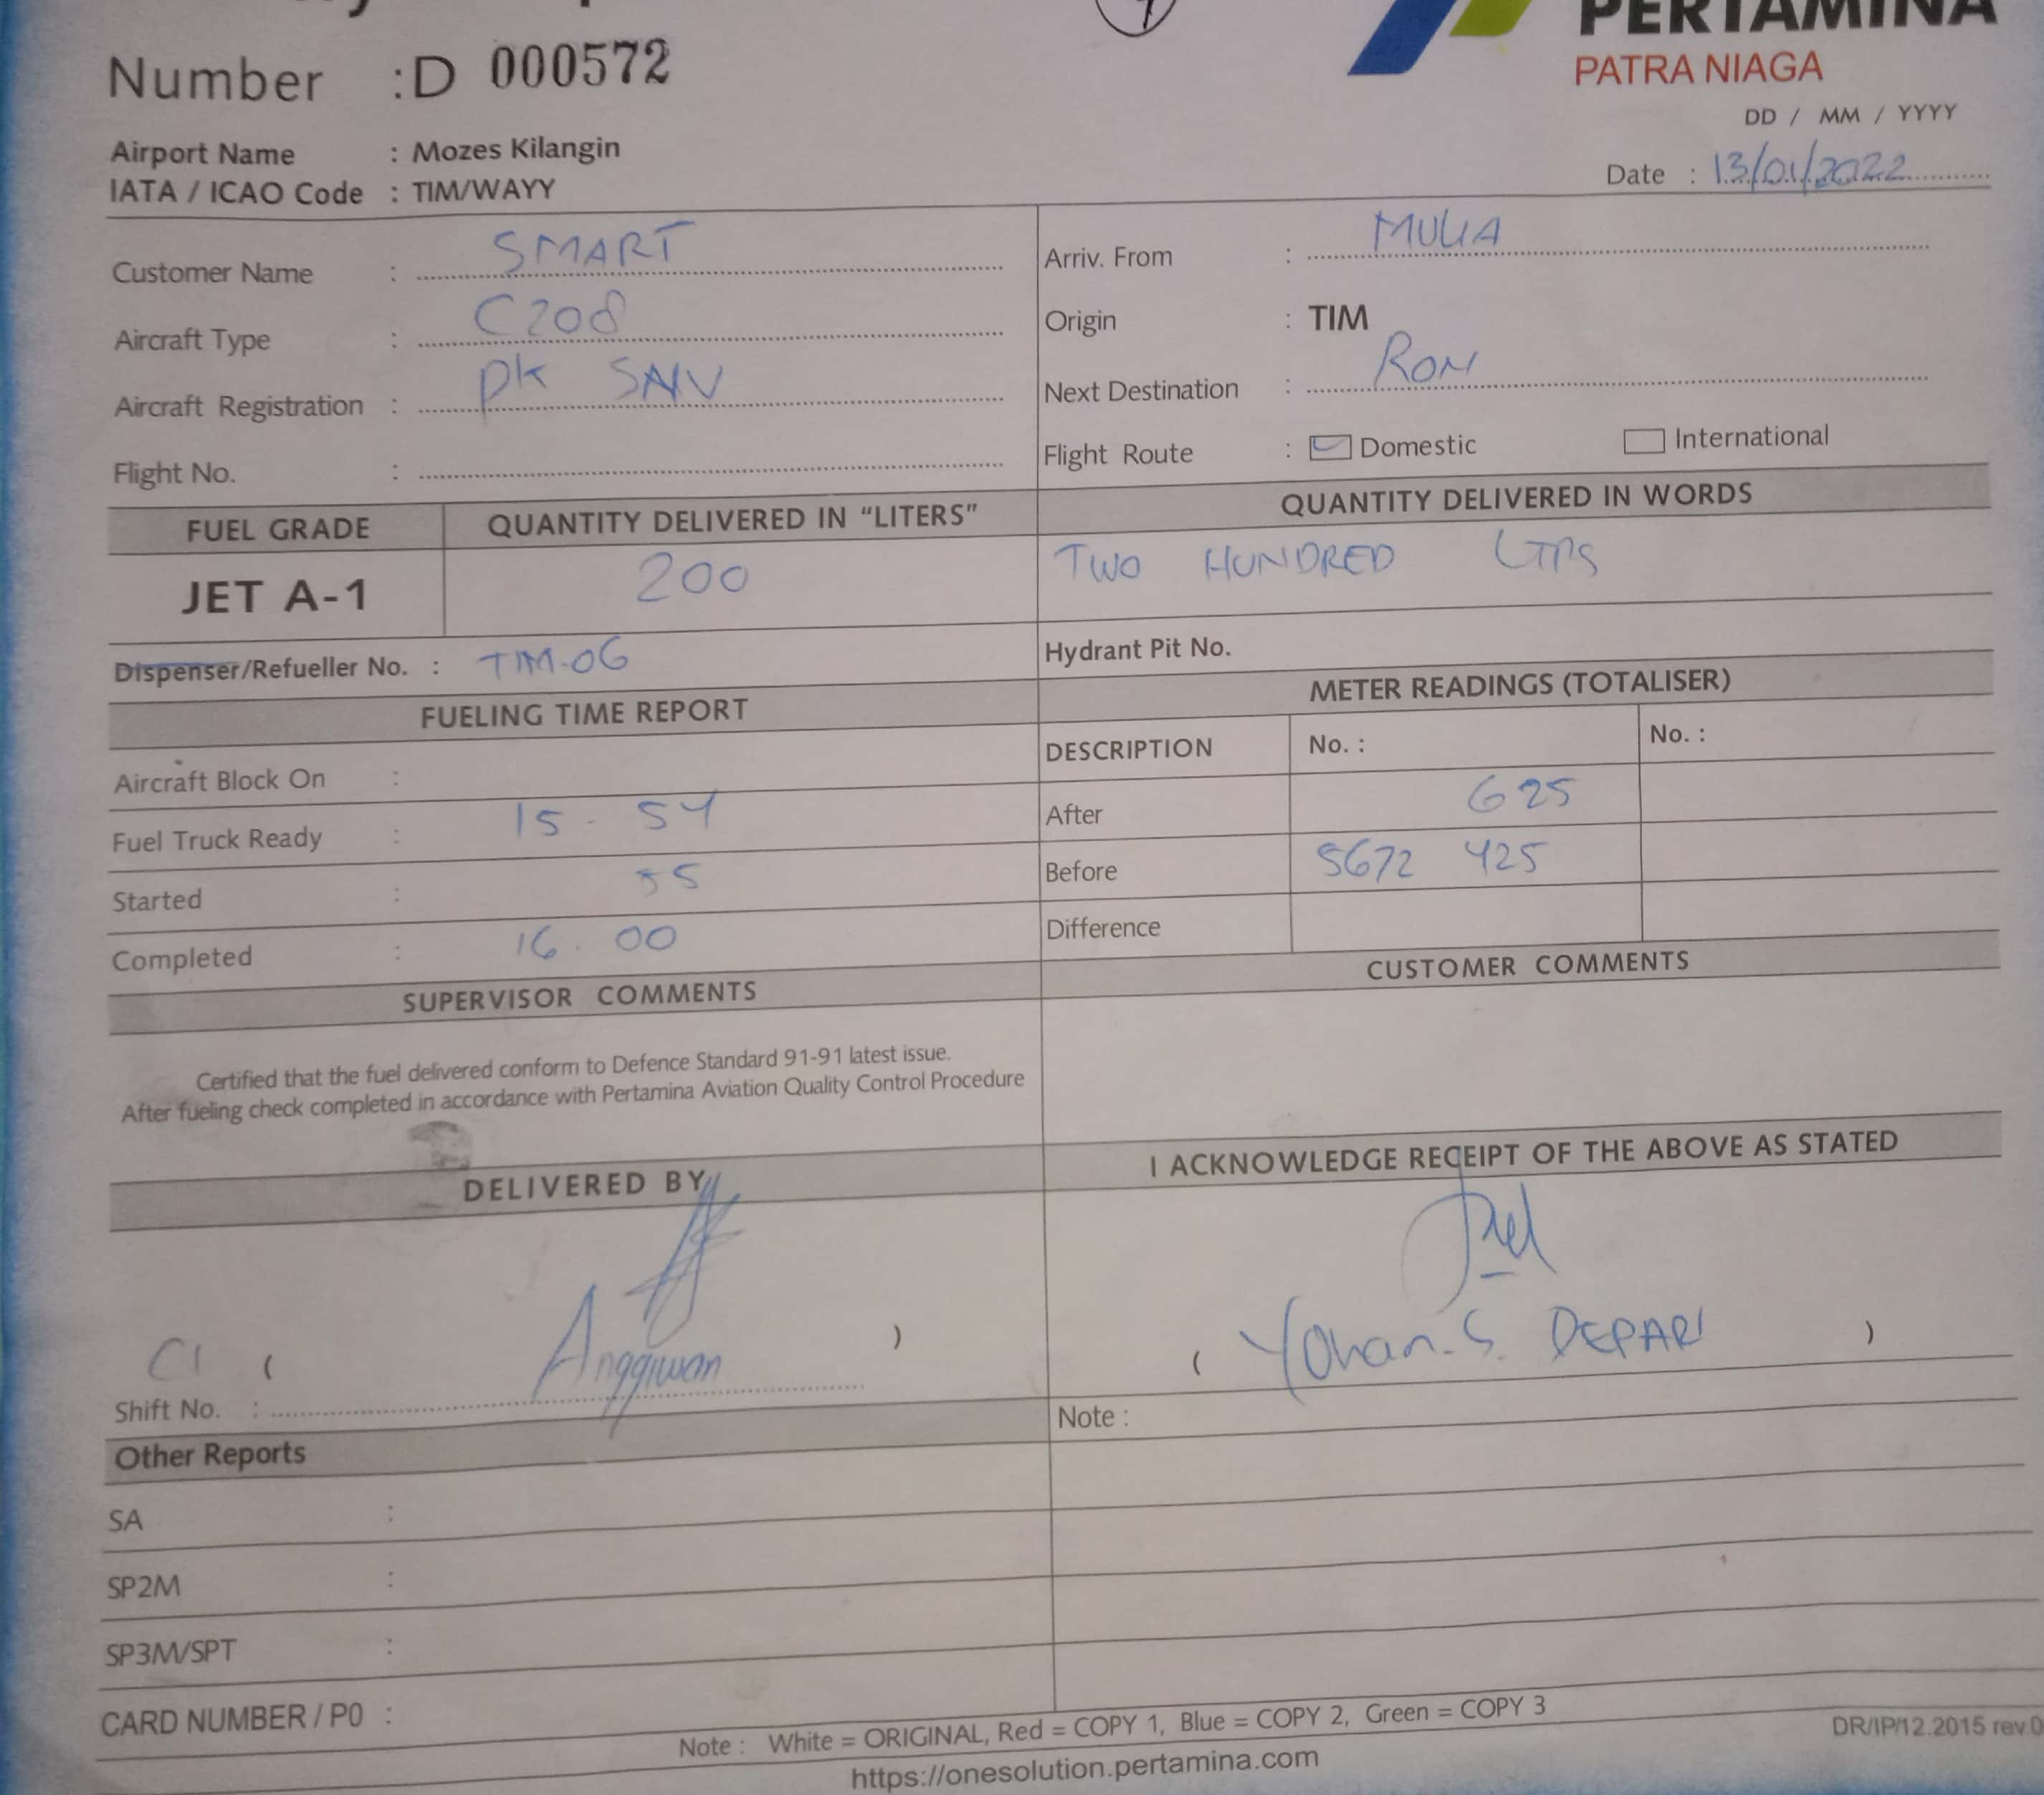 PERTAMINA
PATRA NIAGA
Number : D 000572
DD / MM / YYYY
Airport Name : Mozes Kilangin
IATA / ICAO Code : TIM/WAYY
Date : 13/01/2022
Customer Name : SMART
Arriv. From : MULIA
Aircraft Type : C208
Origin : TIM
Aircraft Registration : PK SNV
Next Destination : RON
Flight No. :
Flight Route : Domestic International
FUEL GRADE QUANTITY DELIVERED IN "LITERS" QUANTITY DELIVERED IN WORDS
JET A-1 200 TWO HUNDRED LTRS
Dispenser/Refueller No. : TIM-06
Hydrant Pit No.
FUELING TIME REPORT METER READINGS (TOTALISER)
DESCRIPTION No. : No. :
Aircraft Block On :
Fuel Truck Ready : 15 - 54
After 625
Started : 55
Before 5672 425
Completed : 16. 00
Difference
SUPERVISOR COMMENTS CUSTOMER COMMENTS
Certified that the fuel delivered conform to Defence Standard 91-91 latest issue.
After fueling check completed in accordance with Pertamina Aviation Quality Control Procedure
DELIVERED BY I ACKNOWLEDGE RECEIPT OF THE ABOVE AS STATED
C1 ( Anggiwan ) ( Yohan. S. DEPARI )
Shift No. :
Note :
Other Reports
SA :
SP2M :
SP3M/SPT :
CARD NUMBER / P0 :
Note : White = ORIGINAL, Red = COPY 1, Blue = COPY 2, Green = COPY 3
DR/IP/12.2015 rev.0
https://onesolution.pertamina.com